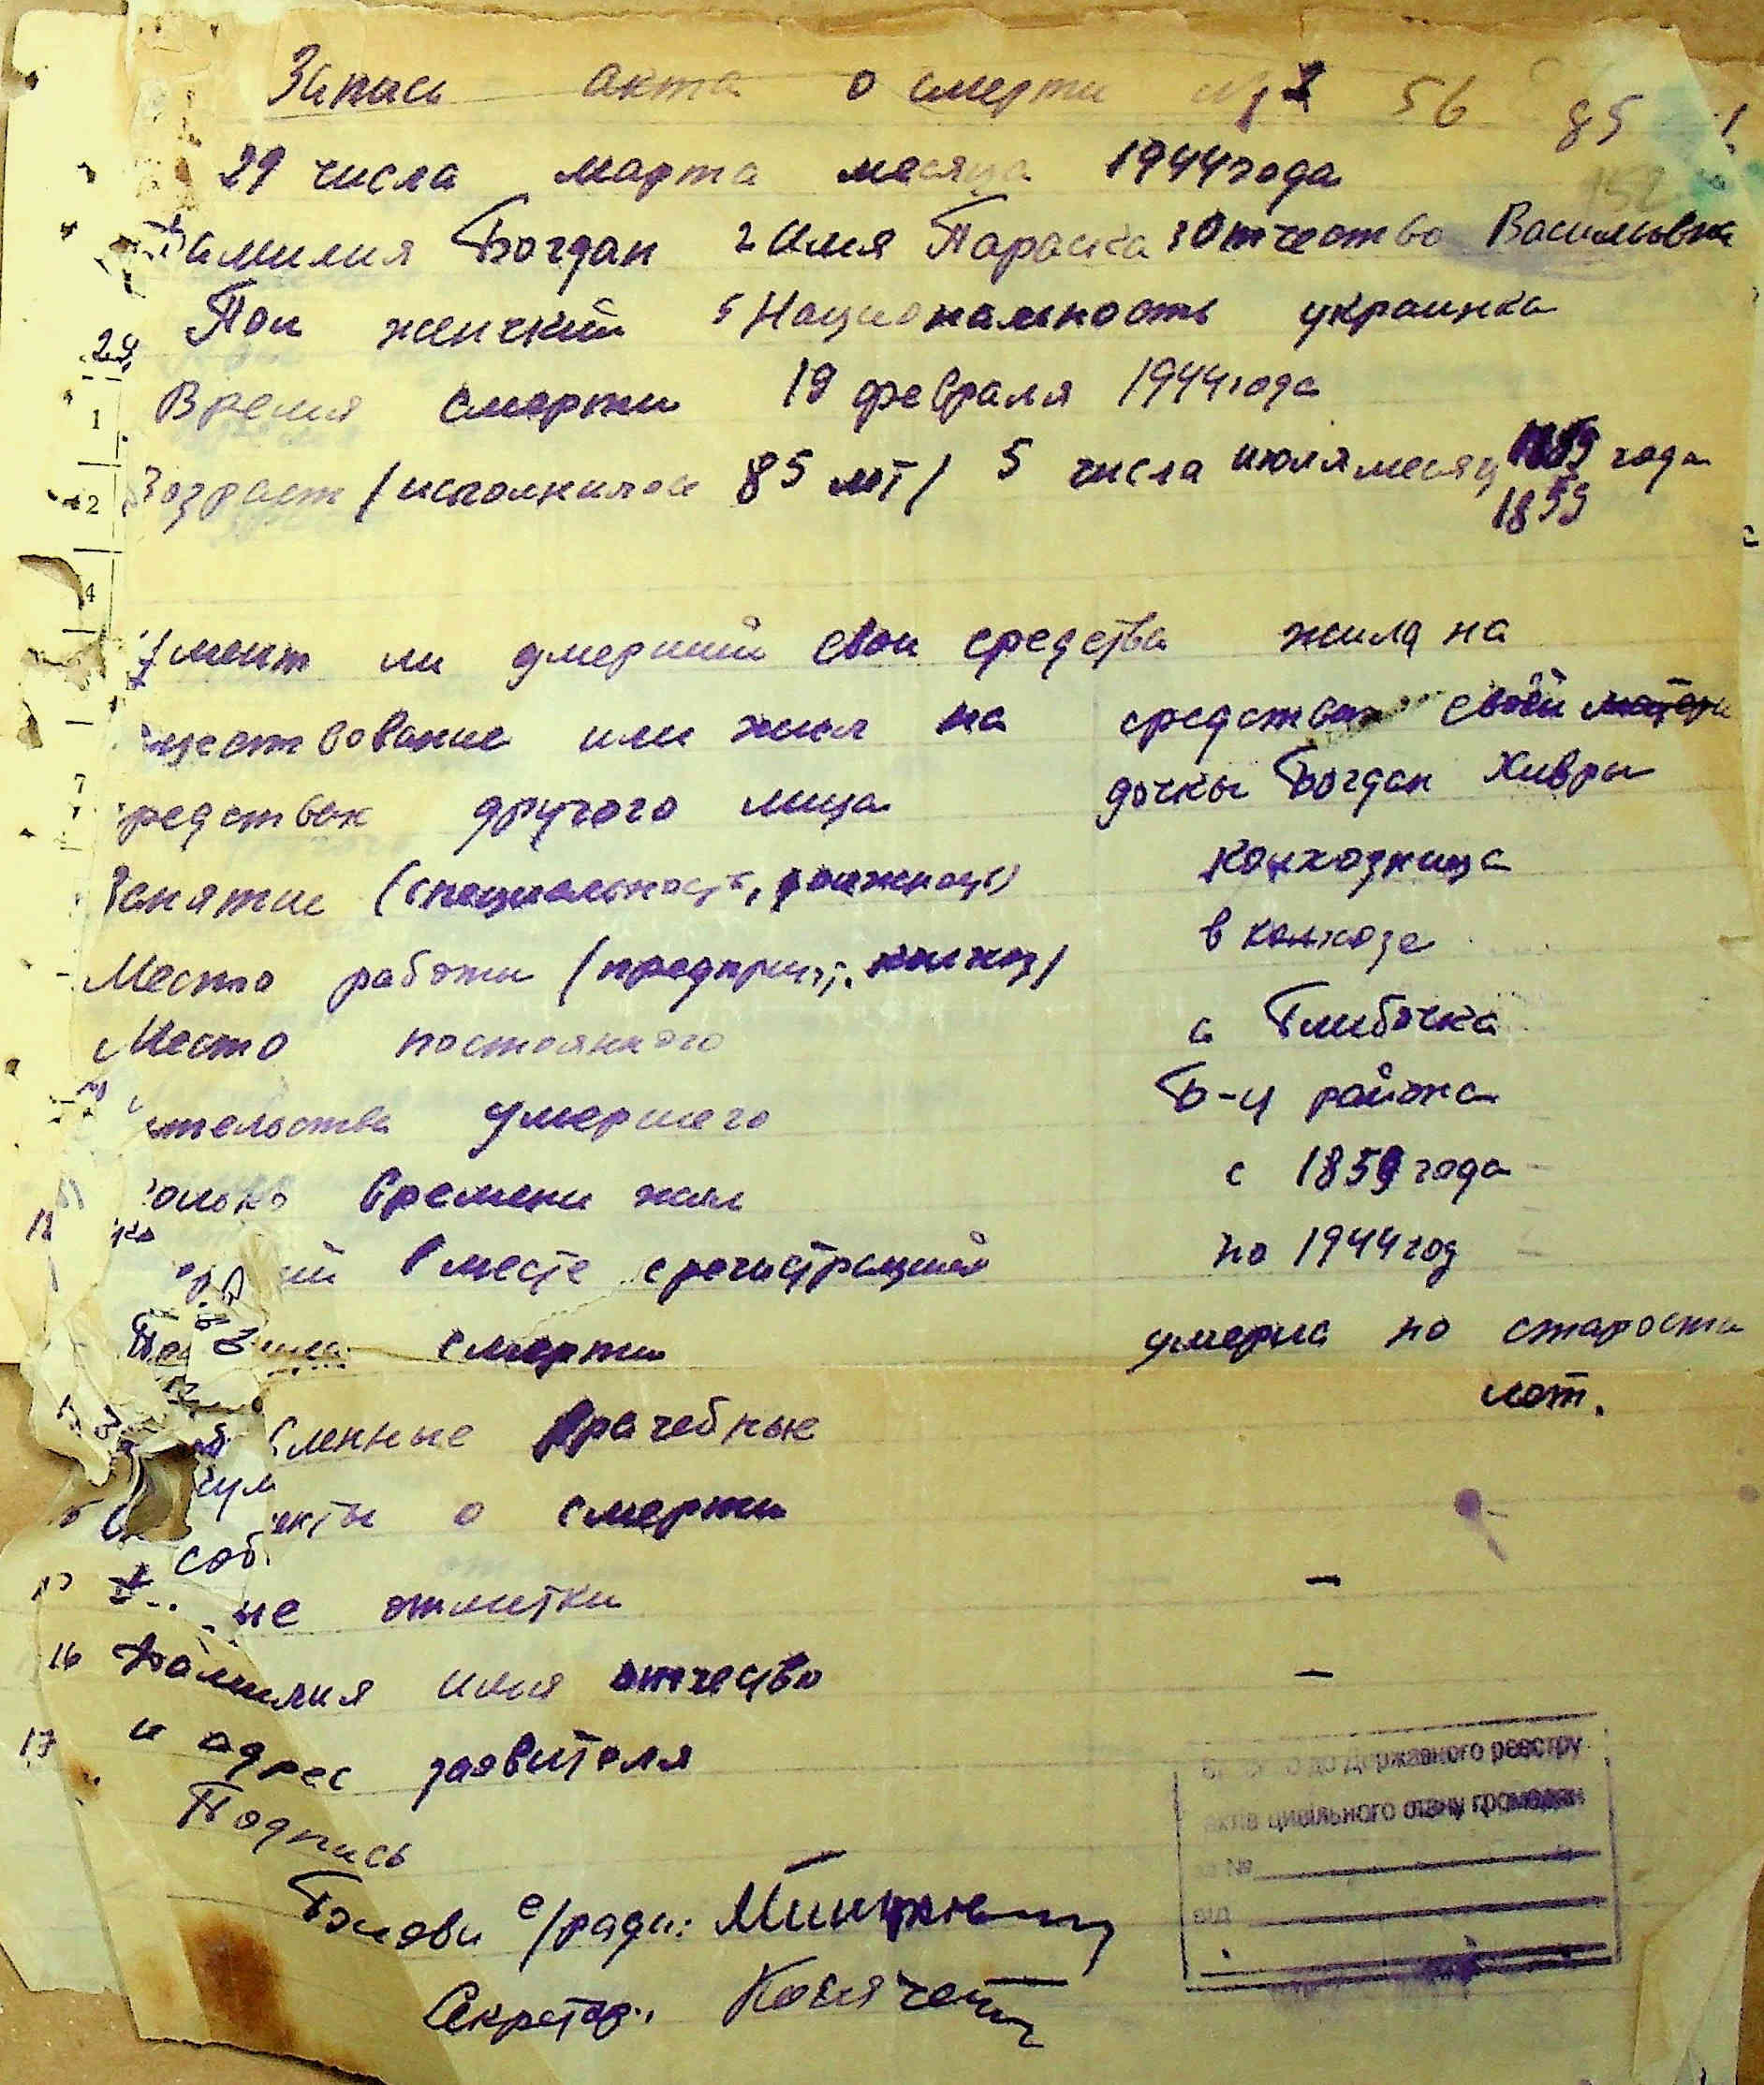 Запись акта о смерти № 56 85
29 числа марта месяца 1944 года
Фамилия Богдан 2 Имя Параска 3 Отчество Васильовна
Пол женский 5 Национальность украинка
Время смерти 19 февраля 1944 года
Возраст /исполнилось 85 лет/ 5 числа июля месяц 1859 года
1859
ли умерший свои средства жила на
или жил на средствах своей матери
средствах другого лица дочки Богдан Хиври
Занятие (специальность, должность) колхозница
Место работы /предприят. колхоз/ в колхозе
Место постоянного с Глибочка
жительства умершего Б-ц района
сколько времени жил с 1859 года
в месте с регистрацией по 1944 год
смерти умерла по старости
лет.
врачебные
о смерти
отметки —
16 Фамилия имя отчество —
17 и адрес заявителя
Подпись
до Державного реєстру
актів цивільного стану громадян
за №
від
Голова с/ради:
Секретар: